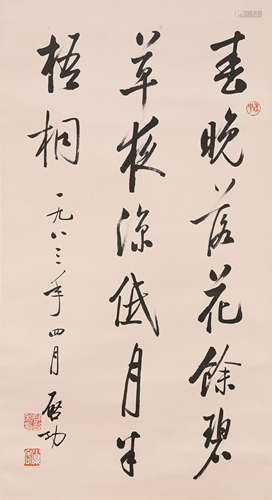 春晚落花餘碧
草夜涼低月半
梧桐 一九八三年四月 啓功